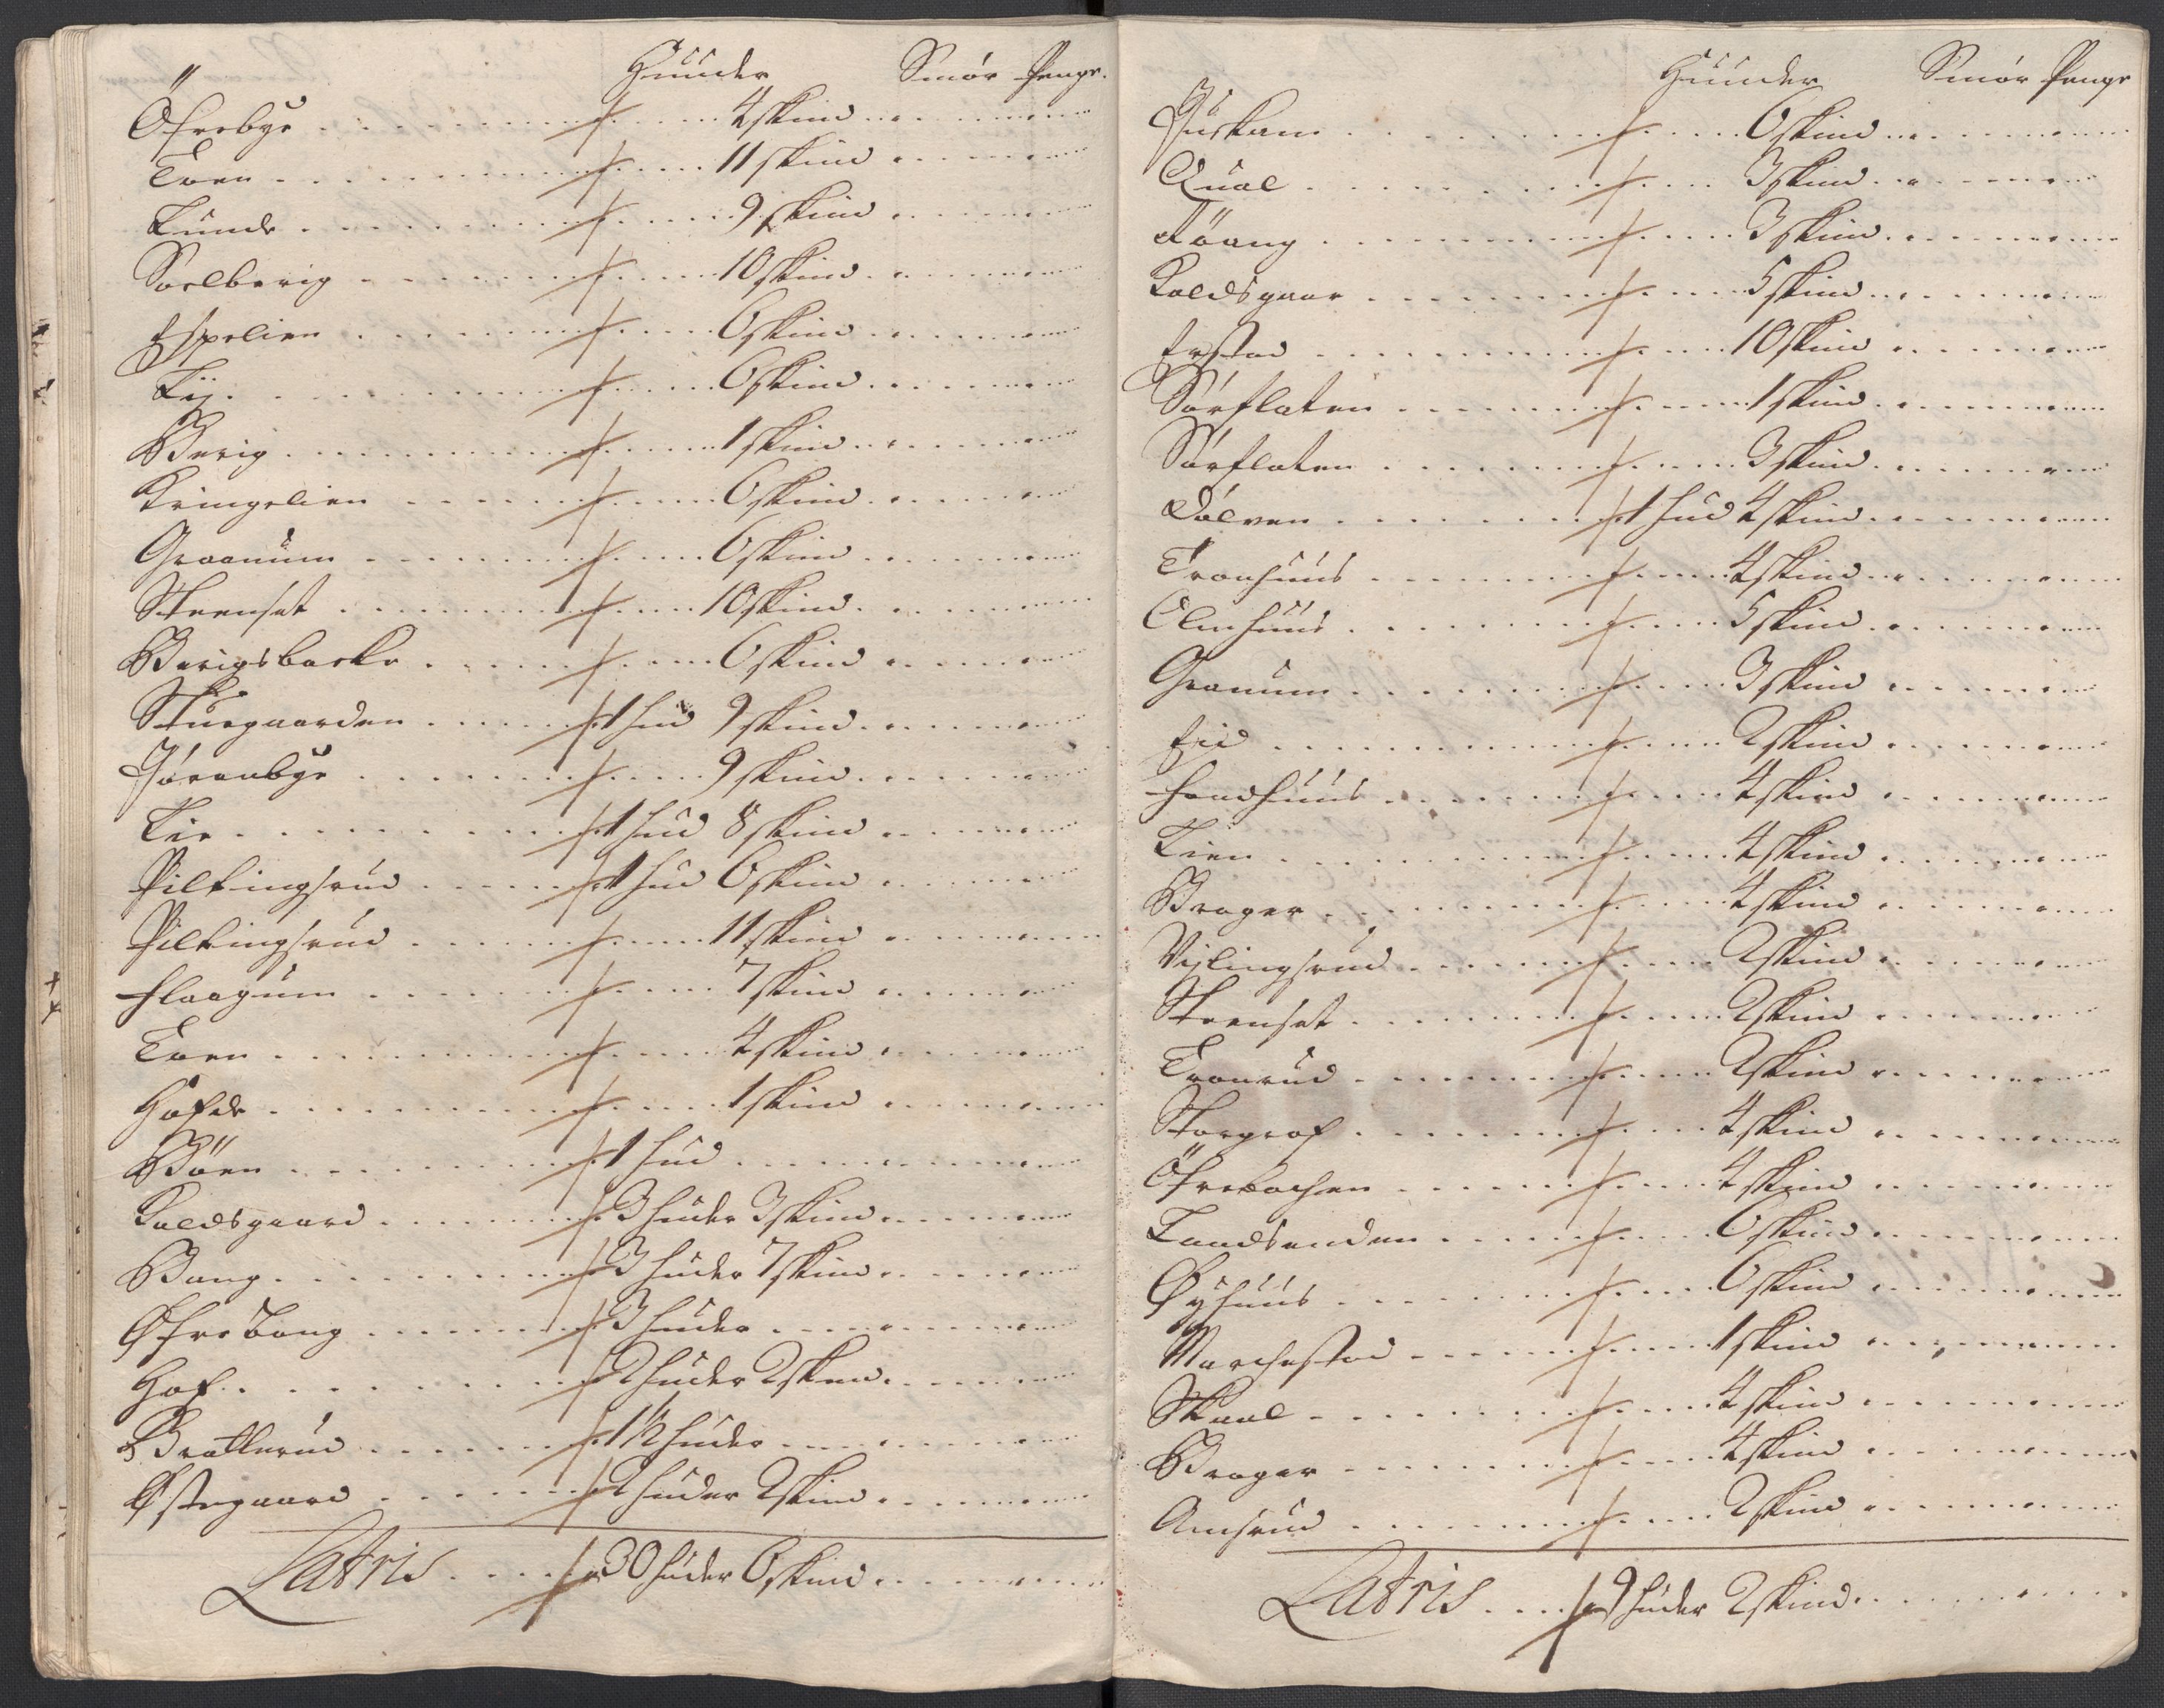 Huuder Smör Penge.
Öfrebye . . . . 4 skind
Toen . . . . 11 skind
Lunde . . . . 9 skind
Soelberig . . . . 10 skind
Espelien . . . . 6 skind
Lij . . . . 6 skind
Berig . . . . 1 skind
Kringelien . . . . 6 skind
Graanum . . . . 6 skind
Steenset . . . . 10 skind
Berigsbacke . . . . 6 skind
Stuegaarden . . . . 1 hud 9 skind
Jöranbye . . . . 9 skind
Lie . . . . 1 hud 8 skind
Piltingsrud . . . . 1 hud 6 skind
Piltingsrud . . . . 11 skind
Flaagum . . . . 7 skind
Toen . . . . 4 skind
Hofde . . . . 1 skind
Böen . . . . 1 hud
Kaldsgaard . . . . 3 huder 3 skind
Bang . . . . 3 huder 7 skind
Øfrebang . . . . 3 huder
Hof . . . . 2 huder 2 skin
Bratterud . . . . 1 1/2 huder
Østegaard . . . . 2 huder 2 skind
Latris . . . . 30 huder 6 skind
Huuder Smör Penge
Juskam . . . . 6 skind
Qual . . . . 3 skind
Röang . . . . 3 skind
Kaldsgaar . . . . 5 skind
Erstad . . . . 10 skind
Sörflaten . . . . 1 skind
Sörflaten . . . . 3 skind
Dölven . . . . 1 hud 4 skind
Tronhuus . . . . 4 skind
Olmhuus . . . . 5 skind
Granum . . . . 3 skind
Eid . . . . 2 skind
Fondhuus . . . . 4 skind
Lien . . . . 4 skind
Brager . . . . 4 skind
Vijlingsrud . . . . 2 skind
Steenset . . . . 2 skind
Tronrud . . . . 2 skind
Storgrof . . . . 4 skind
Öfrebachen . . . . 4 skind
Landsenden . . . . 6 skind
Øyhuus . . . . 6 skind
Marchestad . . . . 1 skind
Skaal . . . . 4 skind
Brager . . . . 4 skind
Amsrud . . . . 2 skind
Latris . . . . 9 huder 2 skind